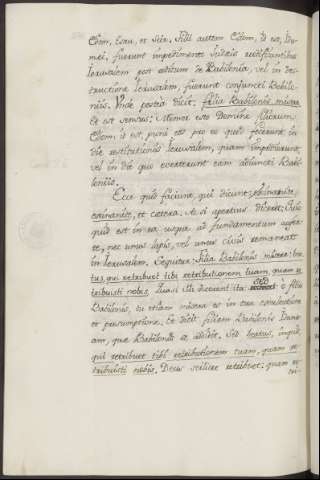 Edom, Esau, et Seir, Filii autem Edom, id est, Idu-
mei, fuerunt impedimento Iudeis reedificantibus
Ierusalem post reditum de Babilonia, vel in des-
tructione Ierusalem, fuerunt coniuncti Babilo-
niis. Vnde postea dicit: filia Babilonis misera.
Et est sensus: Memor esto Domine filiorum
Edom, id est, puni eos pro eo quod fecerunt in
die restitutionis Ierusalem, quam impediverunt,
vel in die qua everterunt eam adiuncti Babi-
loniis.
Ecce quid faciunt, qui dicunt: exinanite,
exinanite, et cetera. Ac si apertius dicerent:
quid est in ea usque ad fundamentum
te, nec unus lapis, vel unus civis remaneat
in Ierusalem. Sequitur: Filia Babilonis misera: bea-
tus, qui retribuet tibi retributionem tuam, quam re-
tribuisti nobis. Quasi illi dicerunt ita: sed o filia
Babilonis, tu etiam misera es in tua exultatione
et presumptione. Et dicit filiam Babilonis
am, que Babilonia est. Sed beatus, inquit,
qui retribuet tibi retributionem tuam, quam re-
tribuisti nobis. Deus scilicet retribuet: quam re-
tri-